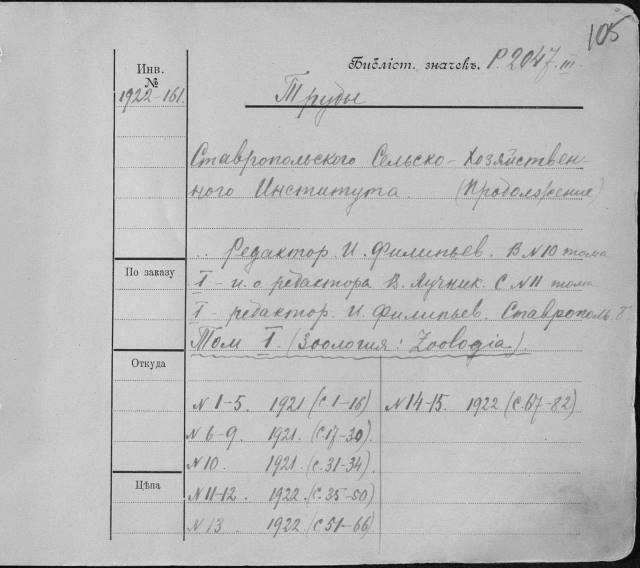 105
Инв.
№
1922-161.
Библіот. значекъ. P.2047.III
Труды
Ставропольского Сельско-Хозяйствен-
ного Института. (Продолжение)
.. Редактор. И. Филипьев. В N10 тома
I - и. о редактора В. Лучник. С N11 тома
По заказу
I - редактор. И. Филипьев. Ставрополь. 8°
Том I. (Зоология: Zoologia.)
Откуда
N 1-5. 1921 (С. 1-16)
N 6-9. 1921. (С. 17-30).
N 10. 1921 (С. 31-34)
N 11-12. 1922. (С. 35-50)
N 13. 1922 (С 51-66)
N 14-15. 1922 (С. 67-82)
Цѣна